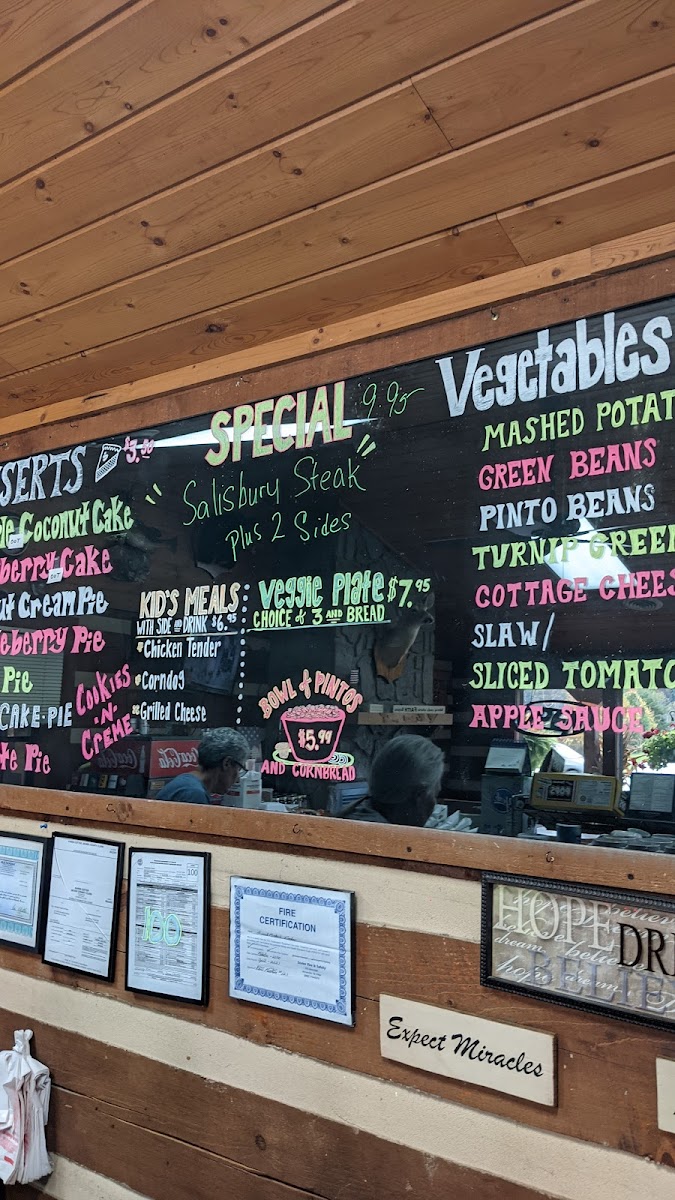 SERTS $3.50
le Coconut Cake
OUT
berry Cake
OUT
ut Cream Pie
eberry Pie
Pie
CAKE-PIE
te Pie
COOKIES
'N-
CREME
SPECIAL 9.95
Salisbury Steak
Plus 2 Sides
KID'S MEALS
WITH SIDE AND DRINK $6.95
*Chicken Tender
*Corndog
*Grilled Cheese
Veggie Plate $7.95
CHOICE of 3 AND BREAD
BOWL of PINTOS
$5.99
AND CORNBREAD
Vegetables
MASHED POTAT
GREEN BEANS
PINTO BEANS
TURNIP GREEN
COTTAGE CHEES
SLAW/
SLICED TOMATO
APPLE SAUCE
100
100
FIRE
CERTIFICATION
HOPE
believe
DR
dream
believe
hope
dream
BELIE
Expect Miracles